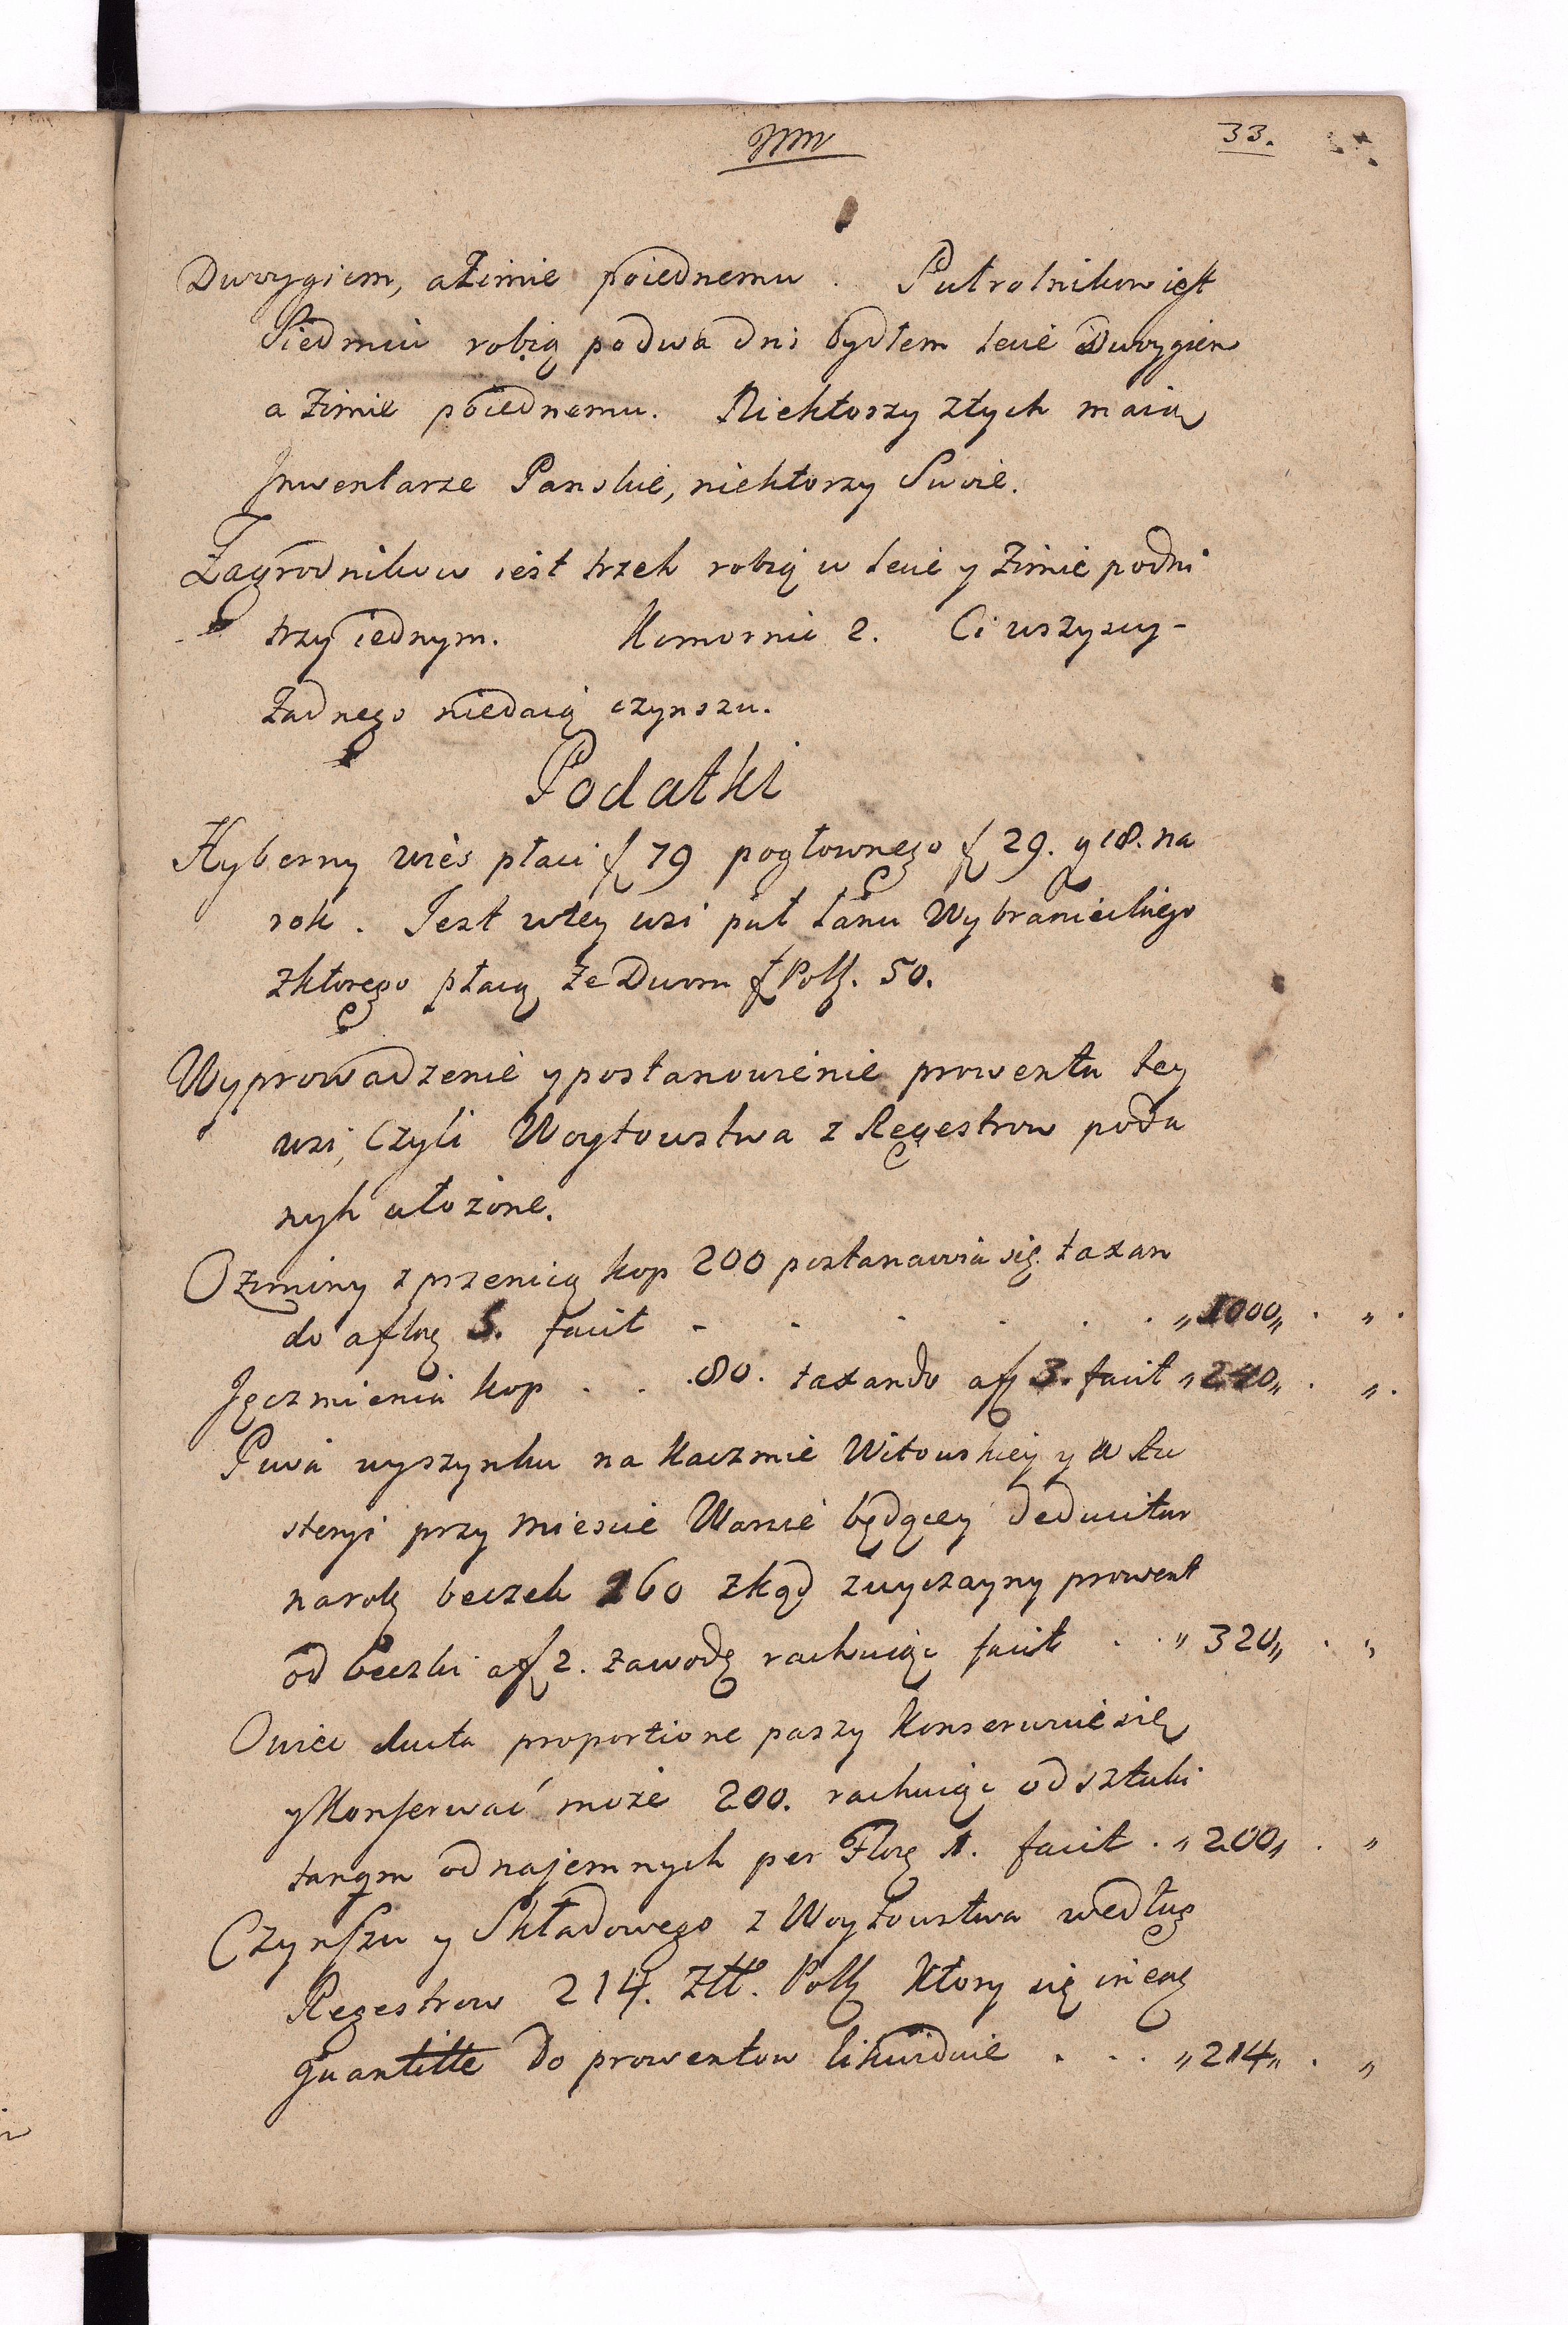 33.
Dwoygiem, a Zimie poiednemu. Pułrolnikow iest
Siedmiu robią po dwa dni bydłem lecie Dwoygiem
a Zimie poiednemu. Niektorzy z tych maią
Inwentarze Panskie, niektorzy Swoie.
Zagrodnikow iest trzech robią w lecie y Zimie po dni
trzy iednym. Komornic 2. Ci wszyscy
Zadnego niedaią czynszu.
Podatki
Hyberny wies płaci f 79 pogłownego f 29. g 18. na
rok. Jest w tey wsi puł Łanu Wybranieckiego
z ktorego płacą ze Dworu f Polk. 50.
Wyprowadzenie y postanowienie prowentu tey
wsi, Czyli Woytowstwa z Regestrow poda
nych ułożone.
Oziminy z pszenicą kop 200 postanawia się taxan
do a florg 5. facit - - . . . . „ 1000 „ . „ .
Jęczmienia kop . . . 80. taxando a f 3. facit „ 240 „ . „ .
Piwa wyszynku na Kaczmie Witowskiey y w Au
steryi przy Miescie Warcie będącey deducitur
na rok beczek 160 zkąd zwyczayny prowent
od beczki a f 2. zawodę rachuiąc facit . . „ 320 „ . „
Owiec ducta proportione paszy Konserwuie się
y Konserwać może 200. rachuiąc od sztuki
tanqm od najemnych per Florg 1. facit . „ 200 „ . „
Czynszu y Składowego z Woytowstwa według
Regestrow 214. Złł. Polk Ktory się in eaq
quantitte do prowentow likwiduie . . . „ 214 „ . „